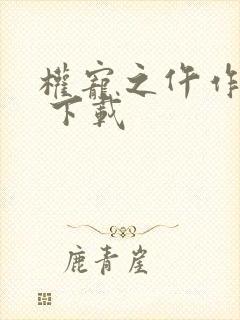 權寵之仵作
下載
鹿青崖